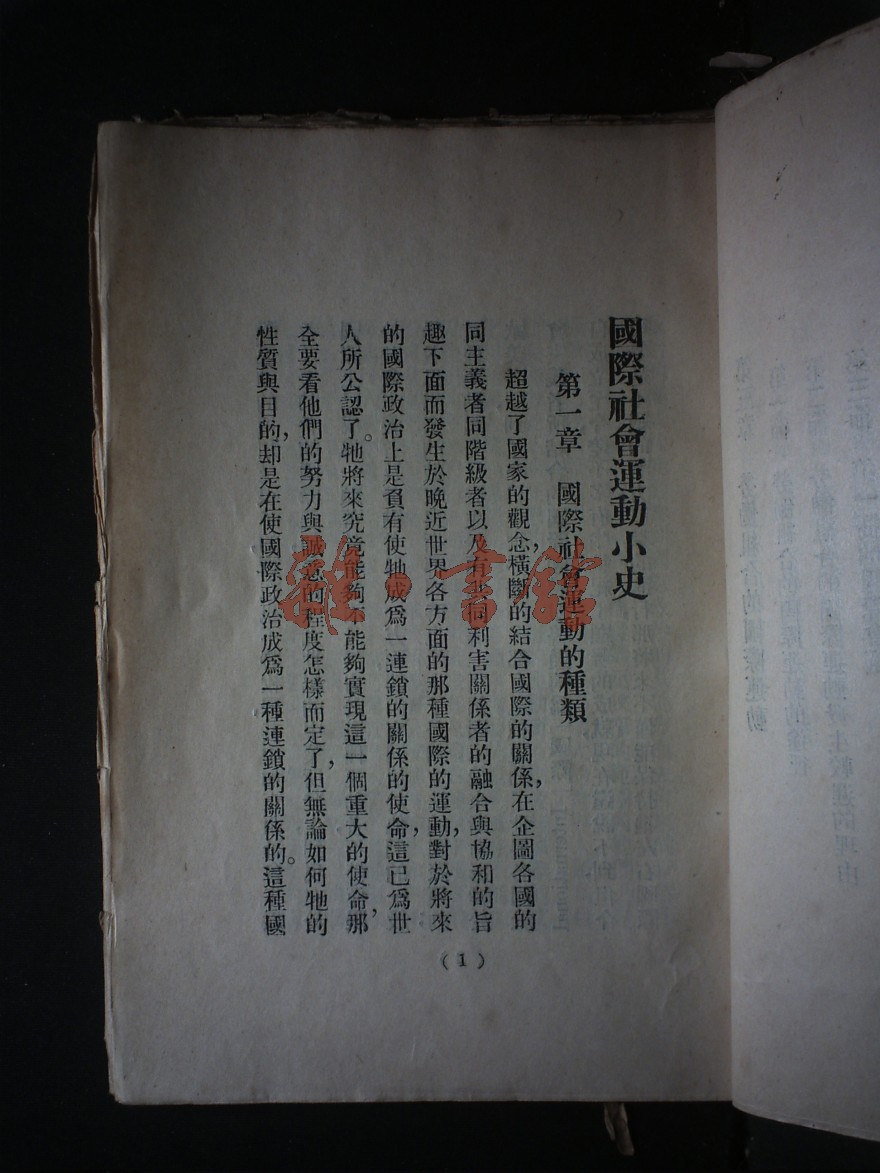 國際社會運動小史
第一章 國際社會運動的種類
超越了國家的觀念,橫斷的結合國際的關係,在企圖各國的
同主義者同階級者以及有共同利害關係者的融合與協和的旨
趣下面而發生於晚近世界各方面的那種國際的運動,對於將來
的國際政治上是負有使牠成爲一連鎖的關係的使命,這已爲世
人所公認了。牠將來究竟能夠不能夠實現這一個重大的使命,那
全要看他們的努力與誠意的程度怎樣而定了,但無論如何牠的
性質與目的,却是在使國際政治成爲一種連鎖的關係的。這種國
(1)
雜·書館